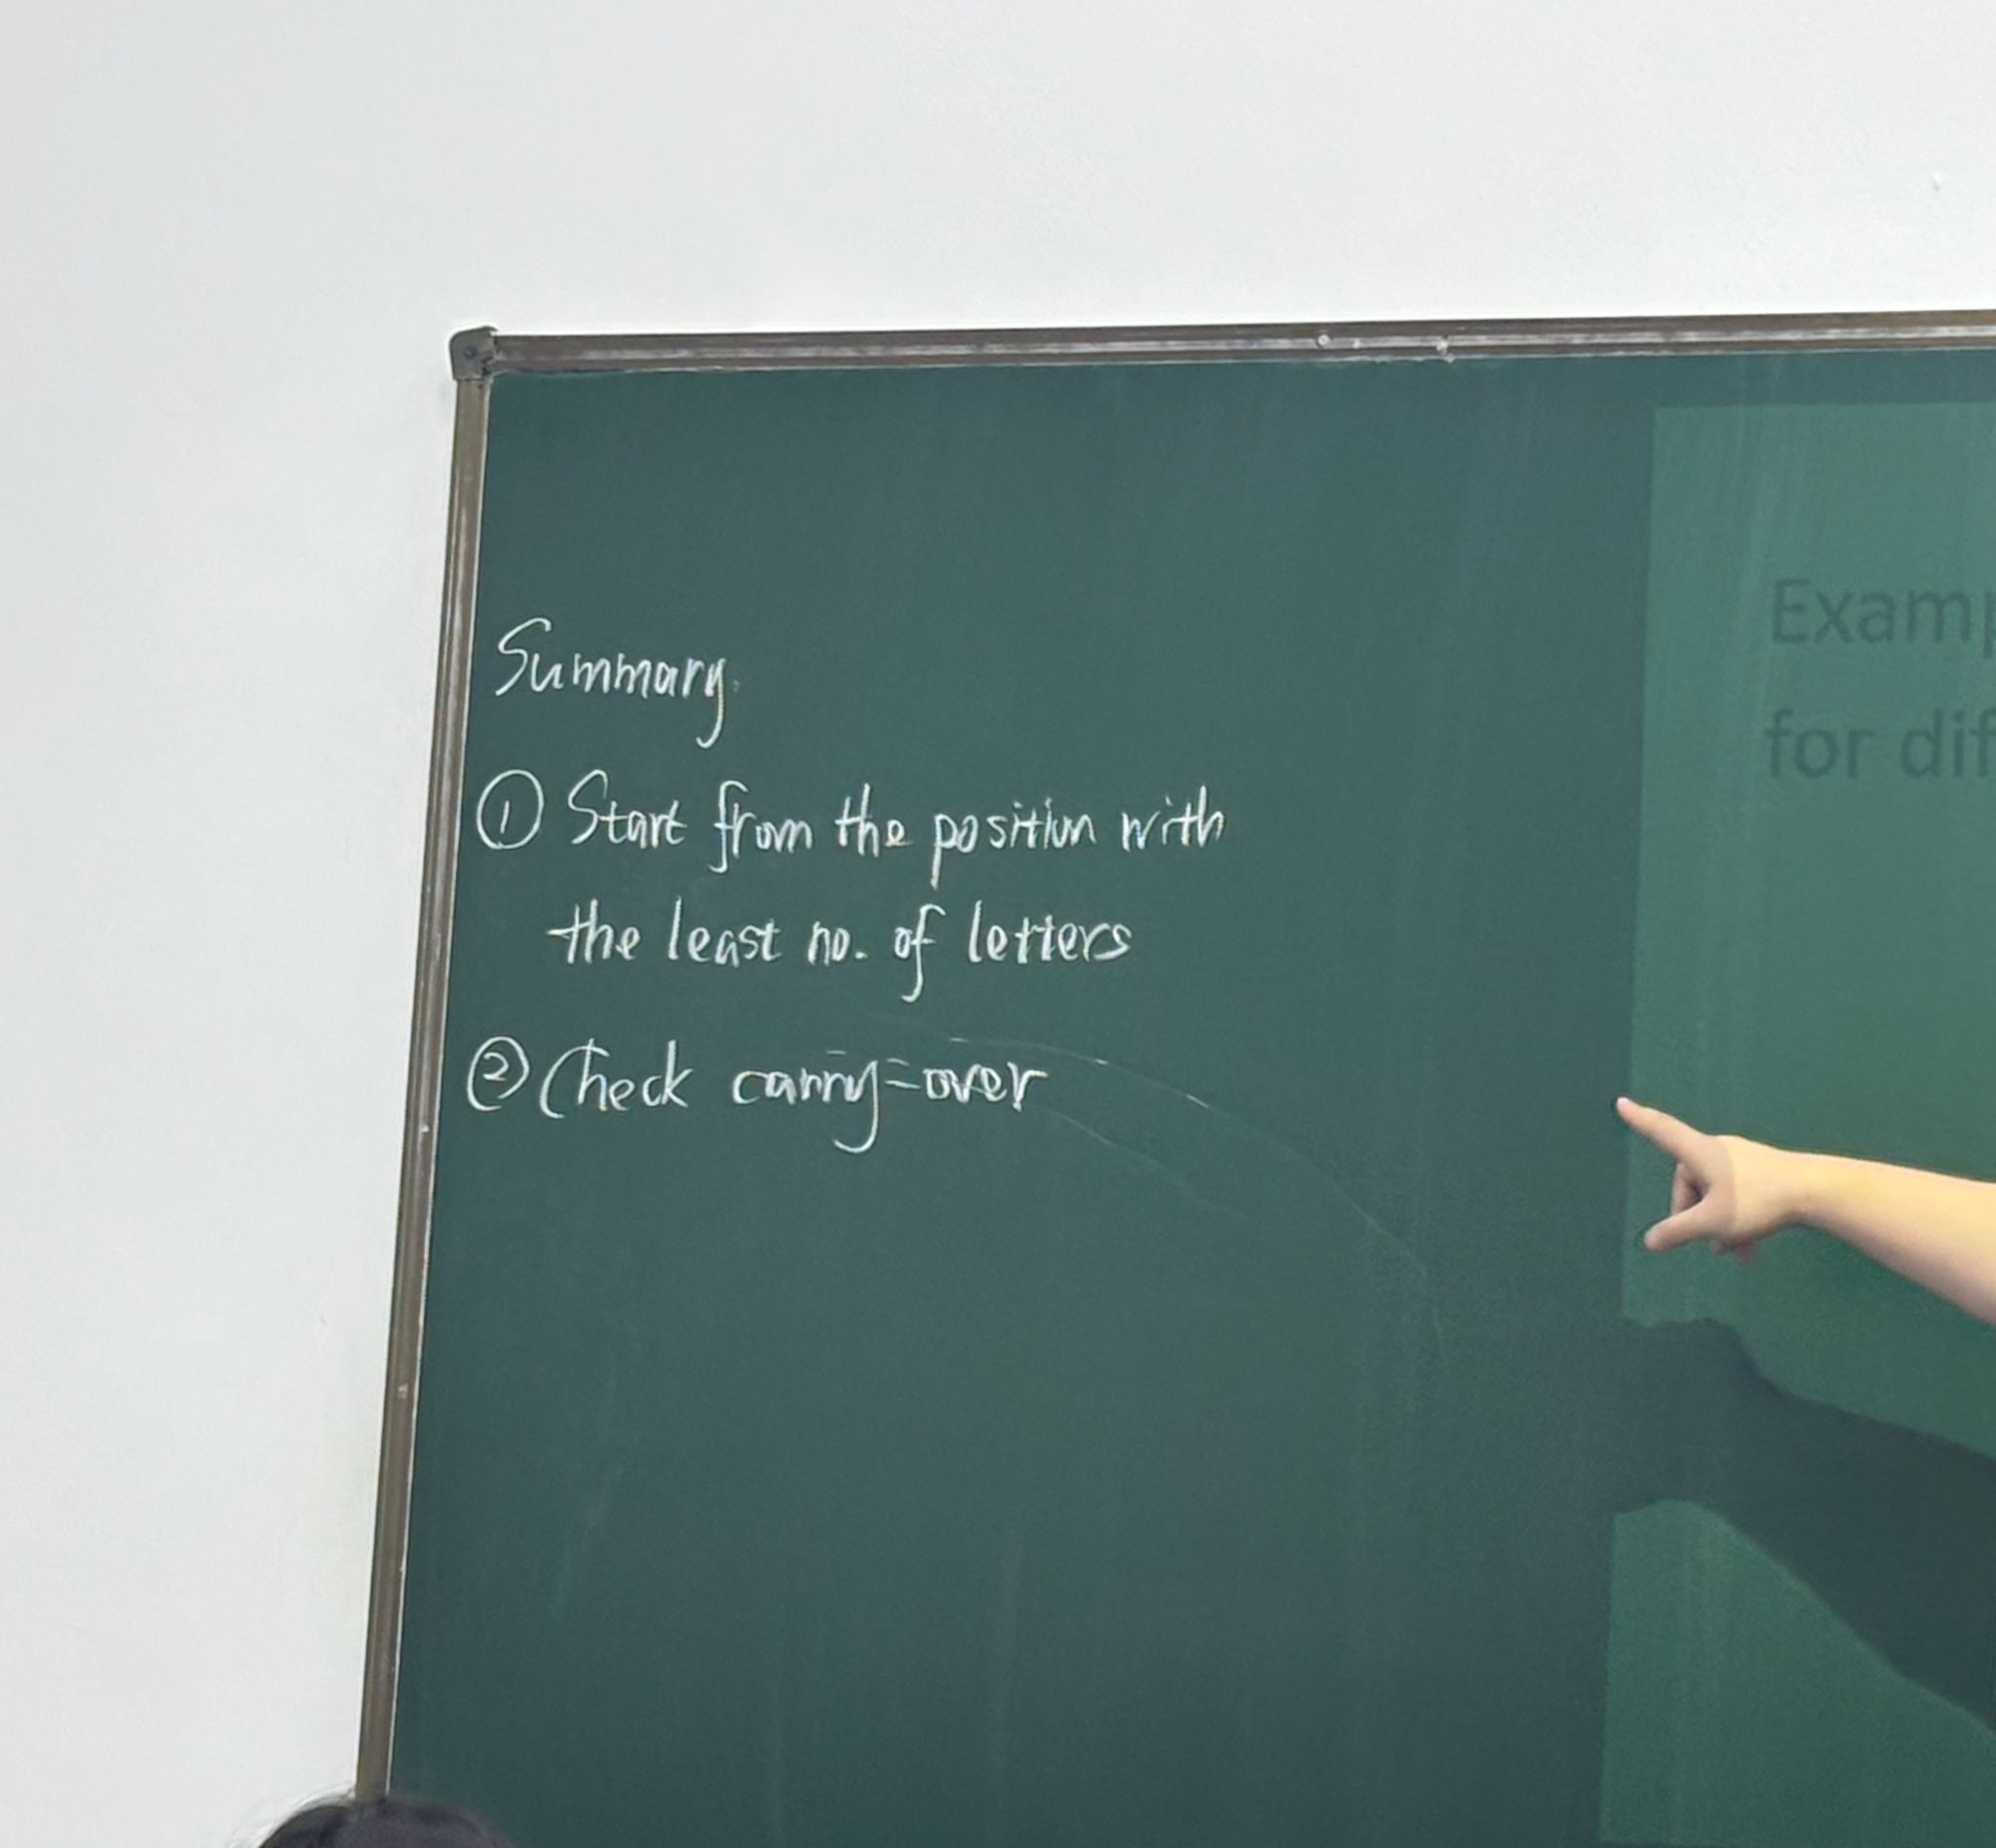 Summary.
① Start from the position with
the least no. of letters
② Check carry-over
Examp
for dif